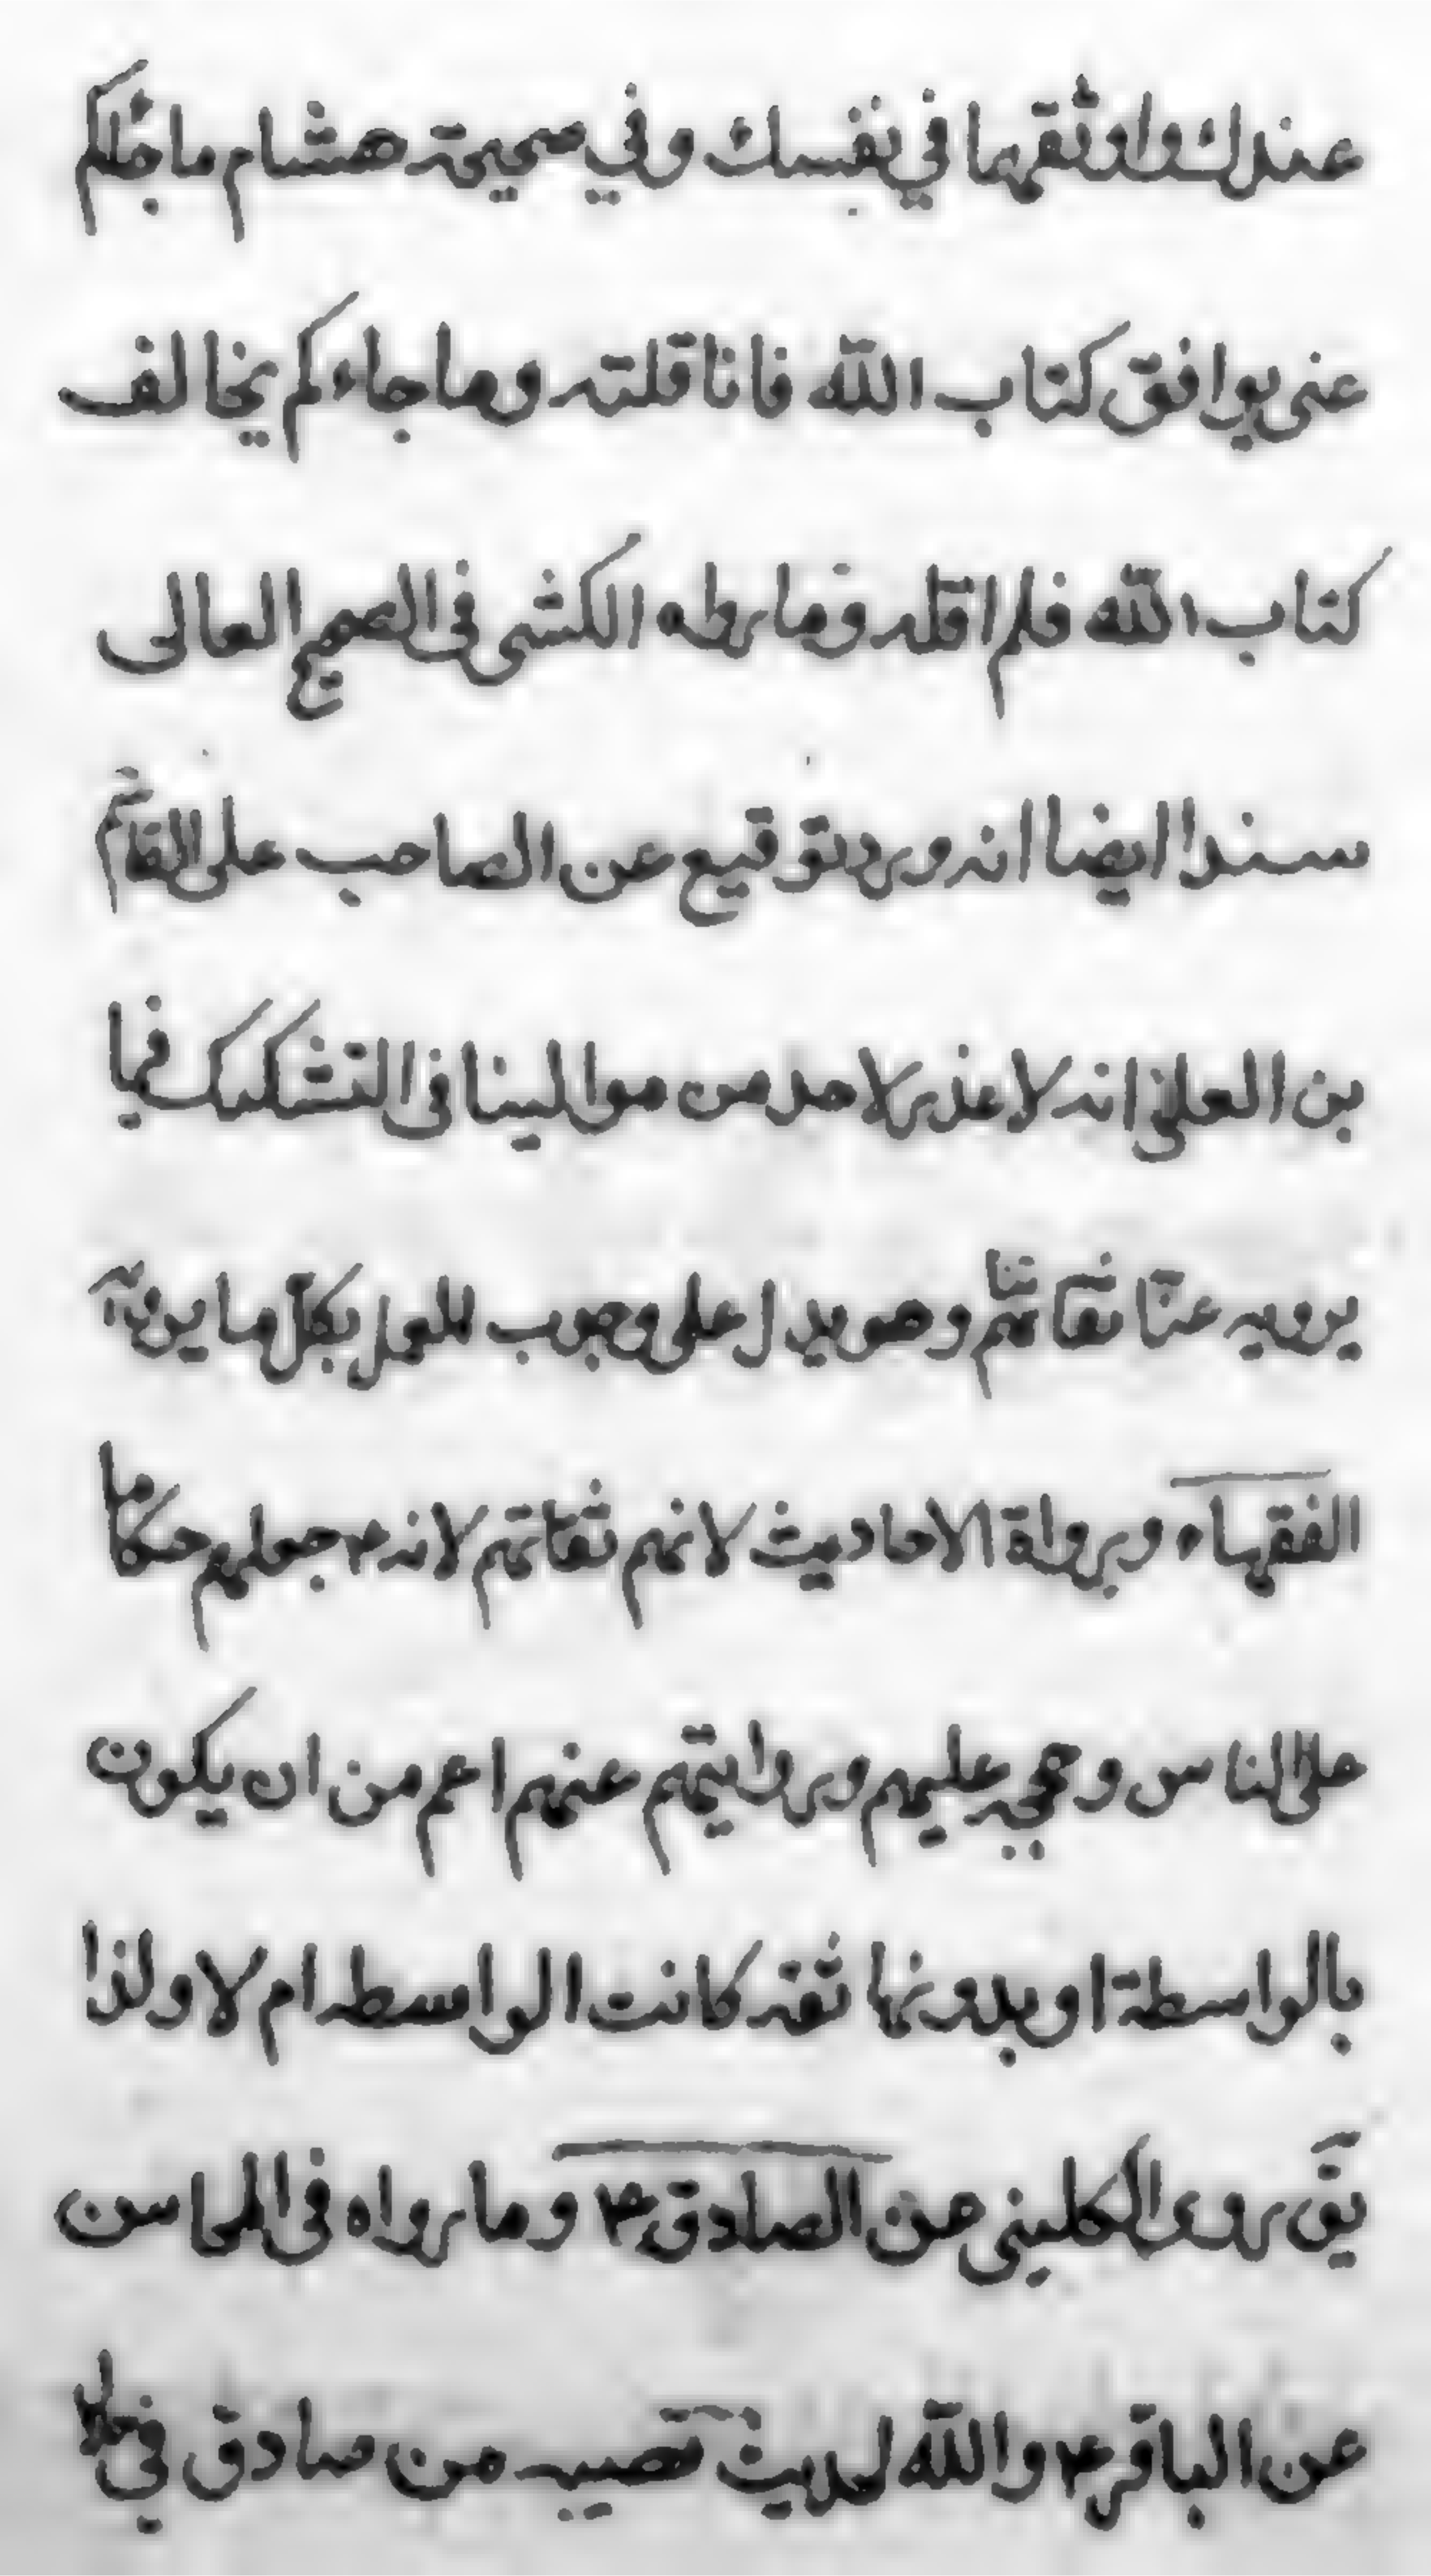 عندك واوثقهما في نفسك وفي صحيحة هشام ما جائكم
عنى يوافق كتاب الله فانا قلته وما جاءكم يخالف
كتاب الله فلم اقله وما رواه الكشى فى الصحيح العالى
سندا ايضا انه ورد توقيع عن الصاحب على القاسم
بن العلى انه لا عذر لاحد من موالينا فى التشكيك فيما
يرويه عنّا ثقاتنا وهو يدل على وجوب العمل بكلّ ما يرويه
الفقهاء ورواة الاحاديث لانهم ثقاتهم لانه ع جعلهم حكاما
على الناس وحجيه عليهم وروايتهم عنهم اعم من ان يكون
بالواسطة او بدونها ثقه كانت الواسطه ام لا ولذا
يقّ روى الكلينى عن الصادق ع وما رواه فى المحاسن
عن الباقر ع والله لحديث تصيبه من صادق في